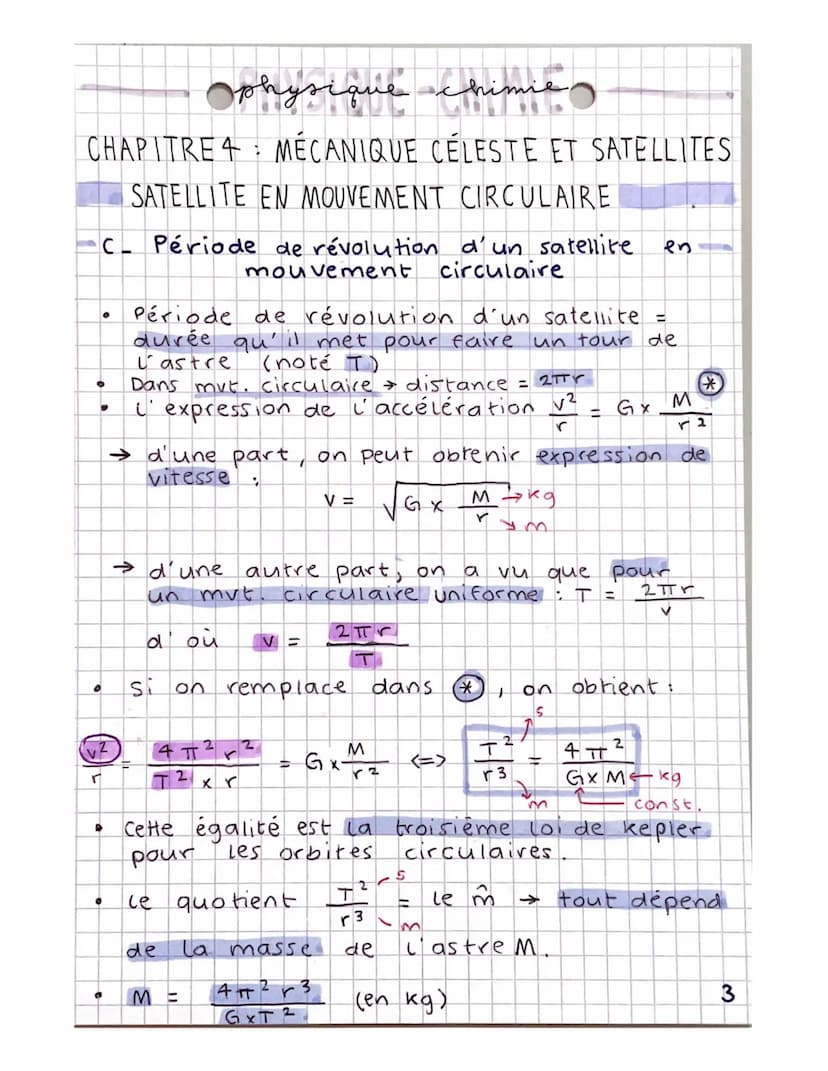 physique-chimie
PHYSIQUE-CHIMIE
CHAPITRE 4 : MÉCANIQUE CÉLESTE ET SATELLITES
SATELLITE EN MOUVEMENT CIRCULAIRE
C - Période de révolution d'un satellite en
mouvement circulaire
• Période de révolution d'un satellite =
durée qu'il met pour faire un tour de
l'astre (noté T)
• Dans mvt. circulaire → distance = 2πr
• L'expression de l'accélération v²/r = G × M/r² (*)
→ d'une part, on peut obtenir expression de
vitesse :
v = √(G × M/r) → kg
→ m
→ d'une autre part, on a vu que pour
un mvt. circulaire uniforme : T = 2πr/v
d'où v = 2πr/T
• si on remplace dans (*), on obtient :
s
v²/r = 4π²r²/(T² × r) = G × M/r² <=> T²/r³ = 4π²/(G × M) ← kg
m const.
• Cette égalité est la troisième loi de kepler
pour les orbites circulaires.
• Le quotient T²/r³ = le m̂ → tout dépend
s
m
de la masse de l'astre M.
• M = 4π²r³/(G × T²) (en kg)
3